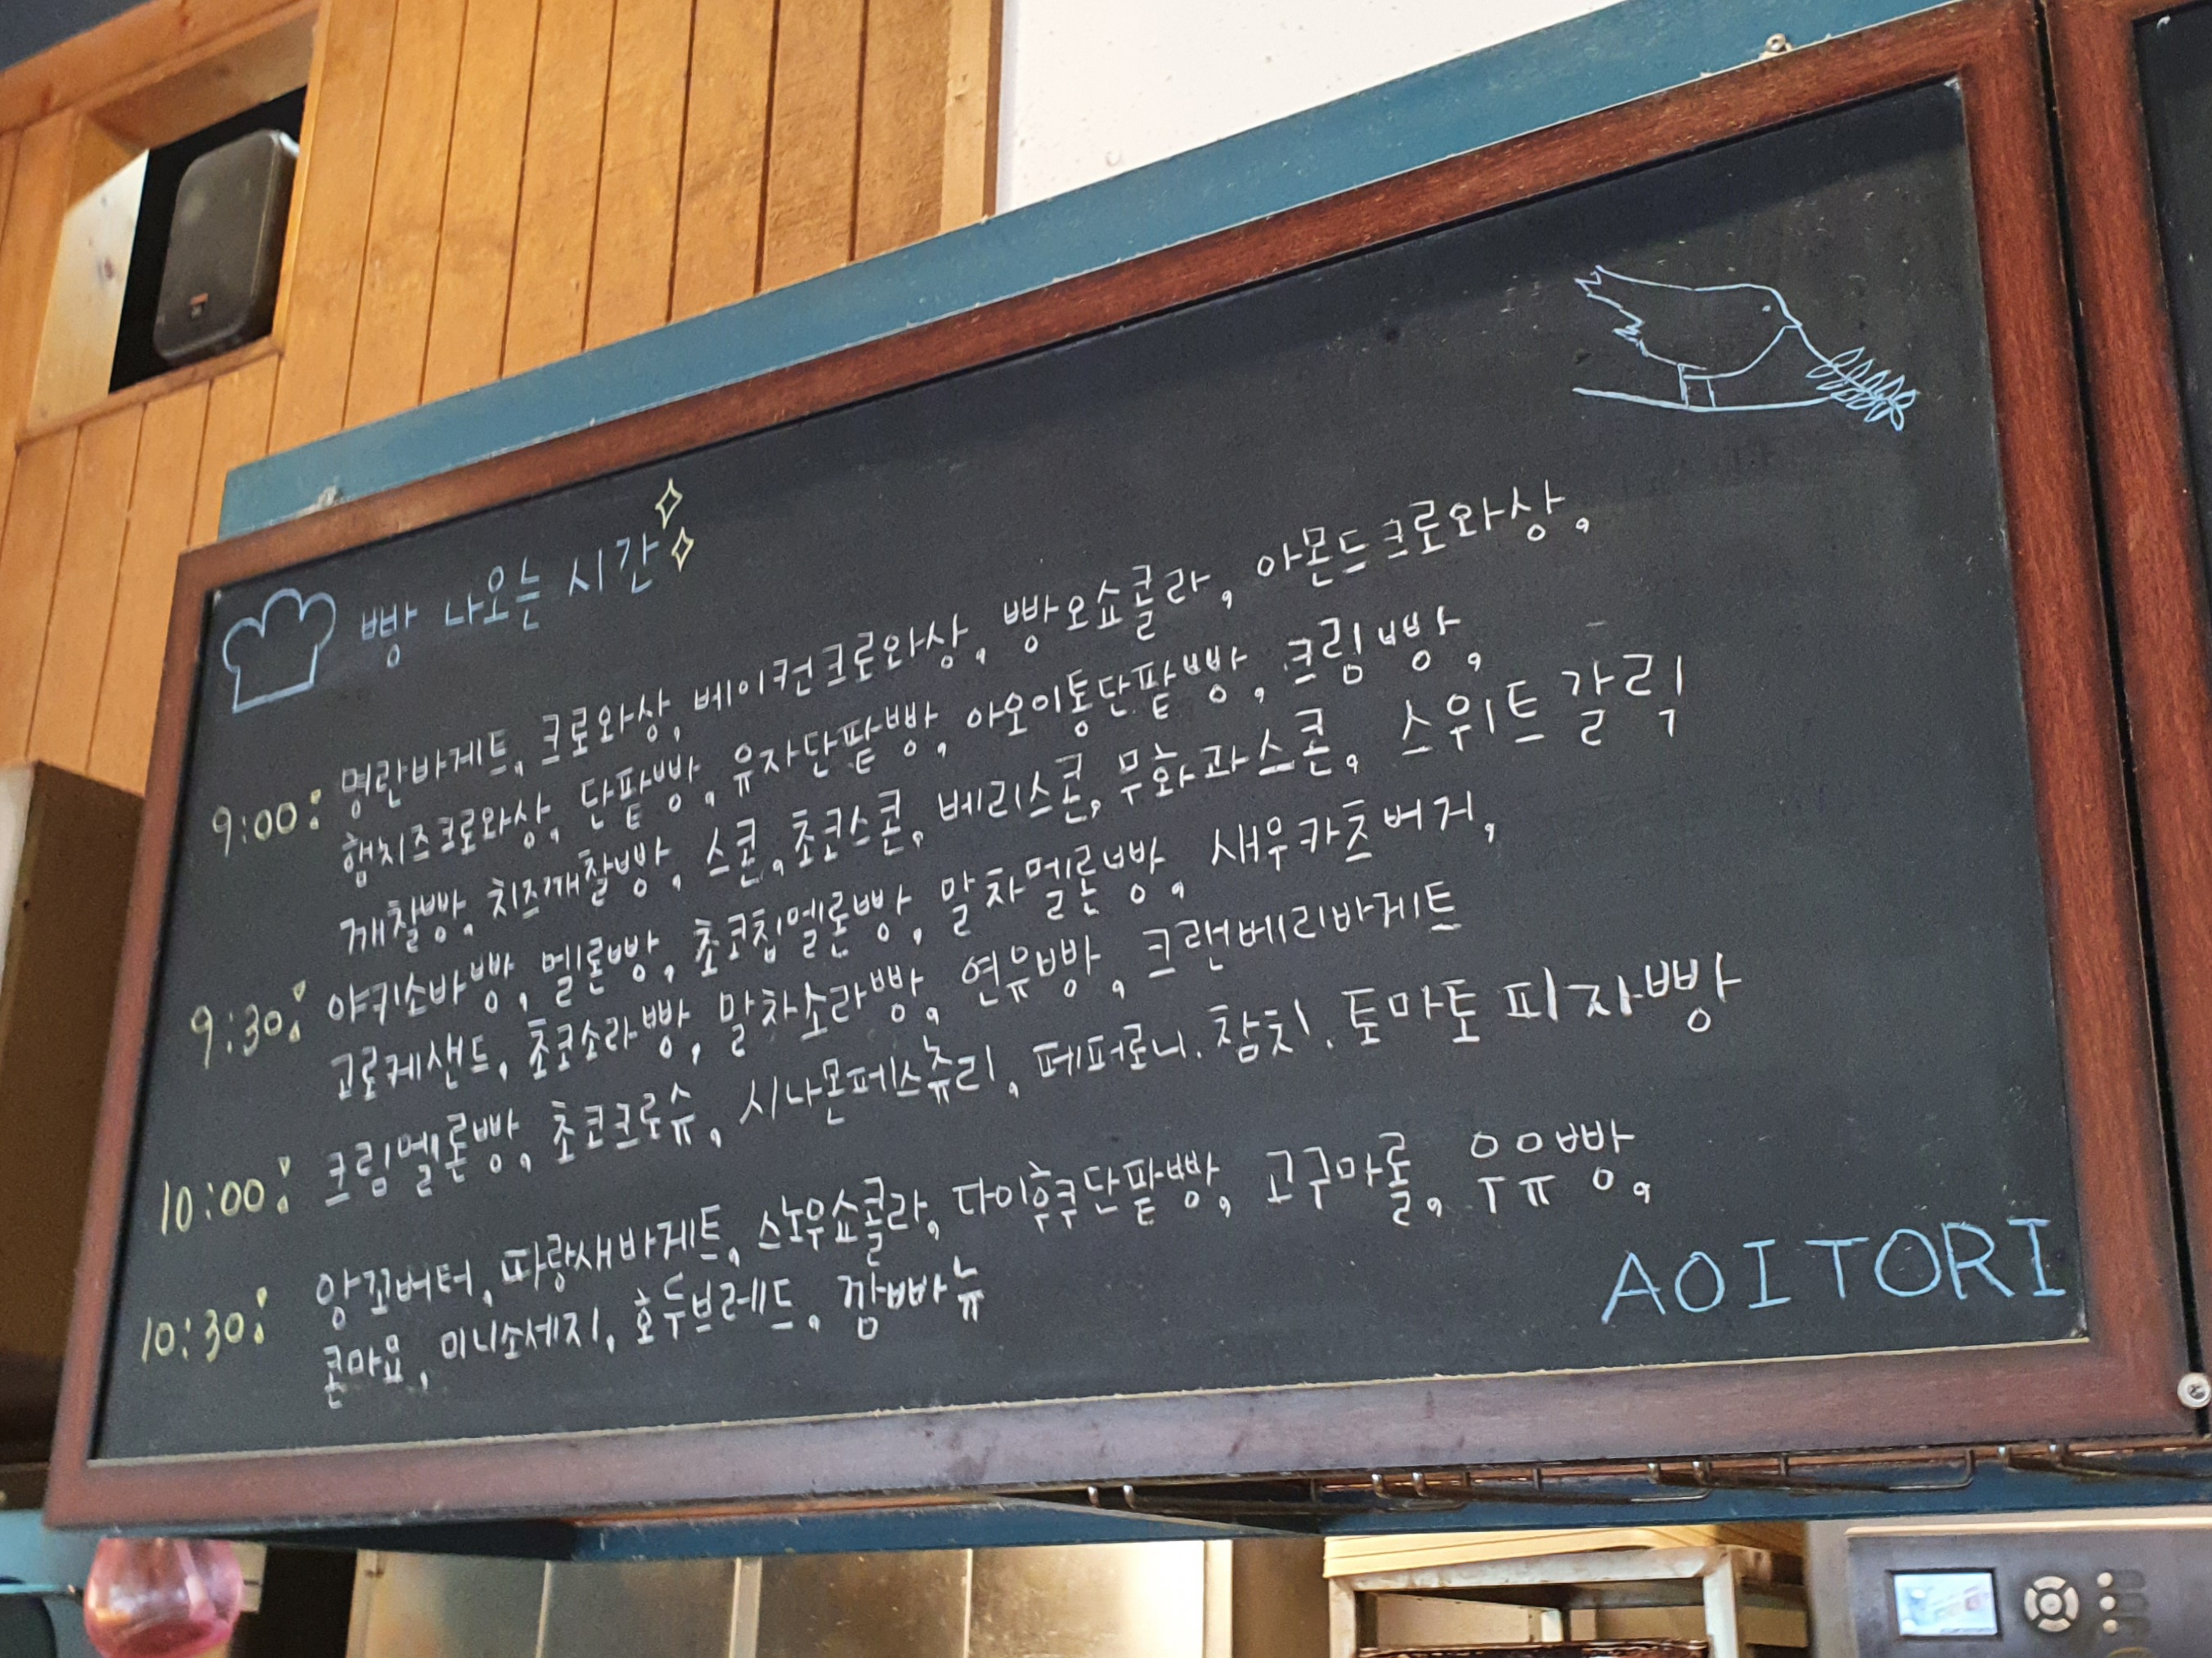 빵 나오는 시간
9:00: 명란바게트, 크로와상, 베이컨크로와상, 빵오쇼콜라, 아몬드크로와상,
햄치즈크로와상, 단팥빵, 유자단팥빵, 아오이통단팥빵, 크림빵,
깨찰빵, 치즈깨찰빵, 스콘, 초코스콘, 베리스콘, 무화과스콘, 스위트갈릭
9:30: 야키소바빵, 멜론빵, 초코칩멜론빵, 말차멜론빵, 새우카츠버거,
고로케샌드, 초코소라빵, 말차소라빵, 연유빵, 크랜베리바게트
10:00: 크림멜론빵, 초코크로슈, 시나몬페스츄리, 페퍼로니, 참치, 토마토 피자빵
10:30: 앙꼬버터, 파랑새바게트, 스노우쇼콜라, 다이후쿠단팥빵, 고구마롤, 우유빵,
콘마요, 미니소세지, 호두브레드, 깜빠뉴
AOITORI